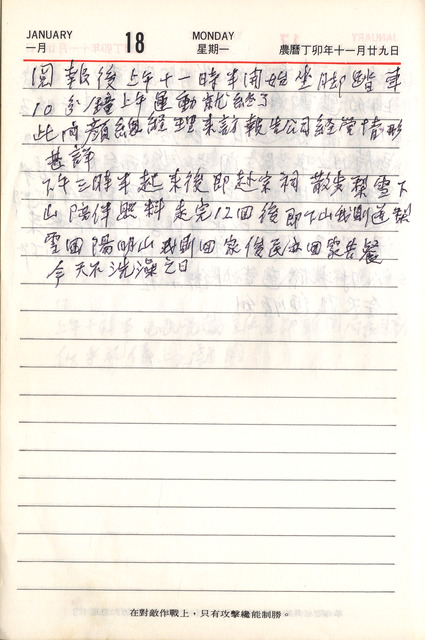 JANUARY 18 MONDAY
一月 星期一 農曆丁卯年十一月廿九日
閱報後上午十一時半開始坐脚踏車
10分鐘上午運動就完了
此時顏總經理來訪報告公司經營情形
甚詳
下午三時半起來後即赴 散步梨雪下
山陪伴照料走完12回後即下山我則送梨
雪回陽明山我則回家俊民亦回家共餐
今天不洗澡之日
在對敵作戰上，只有攻擊纔能制勝。